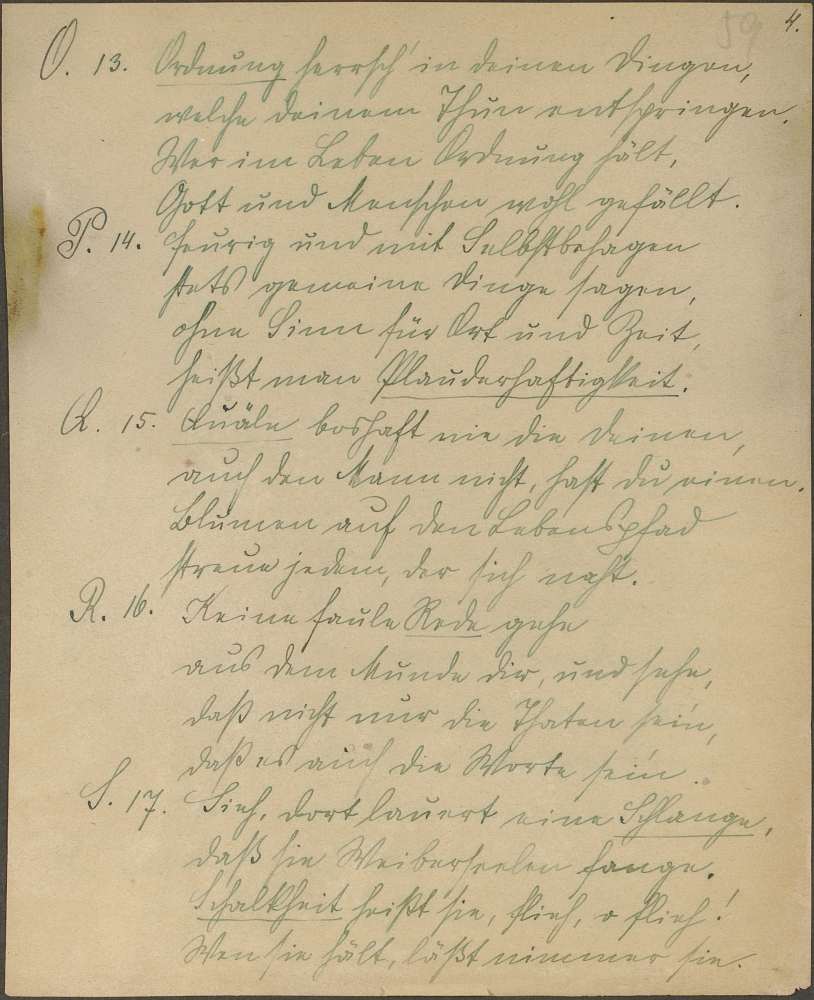 59 4.
O. 13. Ordnung herrsch' in deinen Dingen,
welche deinem Thun entspringen.
Wer im Leben Ordnung hält,
Gott und Menschen wohl gefällt.
P. 14. Feurig und mit Selbstbehagen
stets gemeine Dinge sagen,
ohne Sinn für Ort und Zeit,
heißt man Plauderhaftigkeit.
Q. 15. Quäle boshaft nie die Deinen,
auch den Mann nicht, hast du einen.
Blumen auf den Lebenspfad
streue jedem, der sich naht.
R. 16. Keine faule Rede gehe
aus dem Munde dir, und sehe,
daß nicht nur die Thaten fein,
daß es auch die Worte sein.
S. 17. Sieh, dort lauert eine Schlange,
daß sie Weiberseelen fange.
Schalkheit heißt sie, flieh, o flieh!
Wen sie hält, läßt nimmer sie.